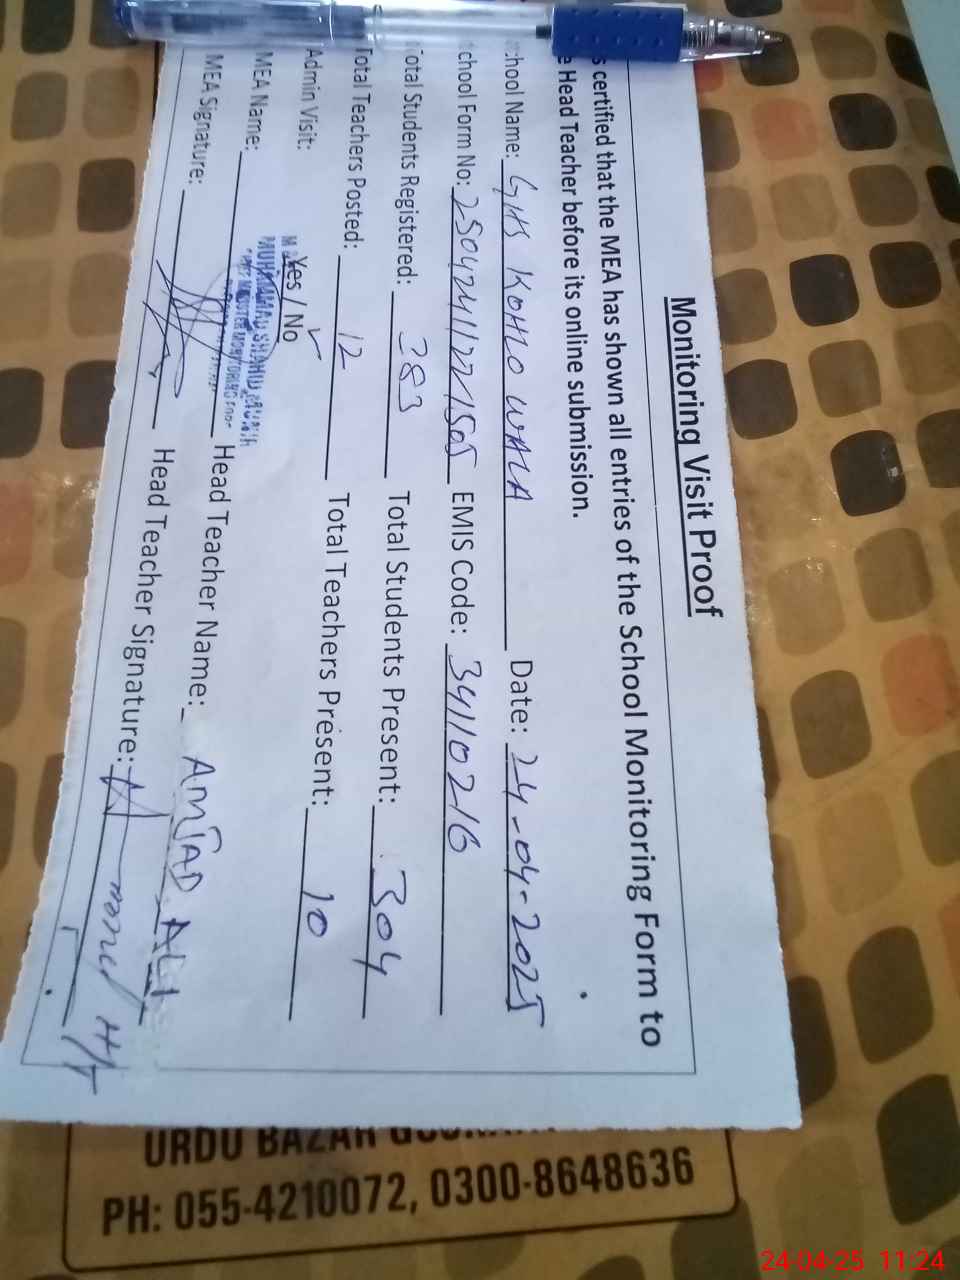 Monitoring Visit Proof
s certified that the MEA has shown all entries of the School Monitoring Form to
e Head Teacher before its online submission.
chool Name: GHS KOHLO WALA Date: 24-04-2025
chool Form No: EMIS Code: 34110216
otal Students Registered: 383 Total Students Present: 304
Total Teachers Posted: 12 Total Teachers Present: 10
Admin Visit: Yes / No ✓
MEA Name: MUHAMMAD SHAHID MUNIR Head Teacher Name: AMJAD ALI
MEA Signature: Head Teacher Signature:
URDU BAZAR
PH: 055-4210072, 0300-8648636
24-04-25 11:24